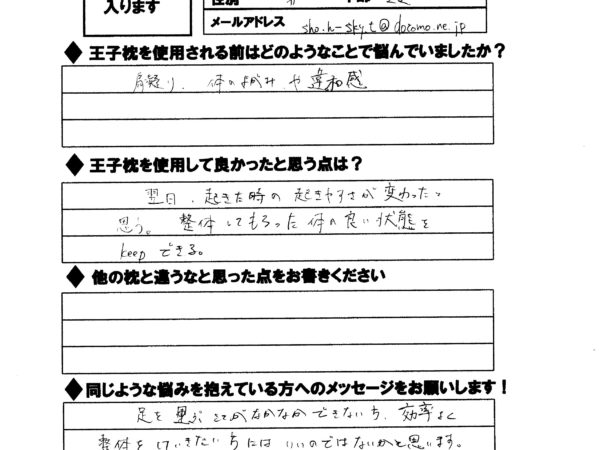 入ります
メールアドレス
sho.h-sky.t@docomo.ne.jp
◆王子枕を使用される前はどのようなことで悩んでいましたか？
肩凝り、体のゆがみや違和感
◆王子枕を使用して良かったと思う点は？
翌日、起きた時の起きやすさが変わったと
思う。整体してもらった体の良い状態を
keepできる。
◆他の枕と違うなと思った点をお書きください
◆同じような悩みを抱えている方へのメッセージをお願いします！
足を運ぶことがなかなかできない方、効率よく
整体をしていきたい方にはいいのではないかと思います。